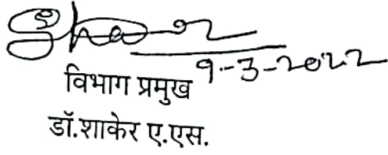 9-3-2022
विभाग प्रमुख
डॉ.शाकेर ए.एस.